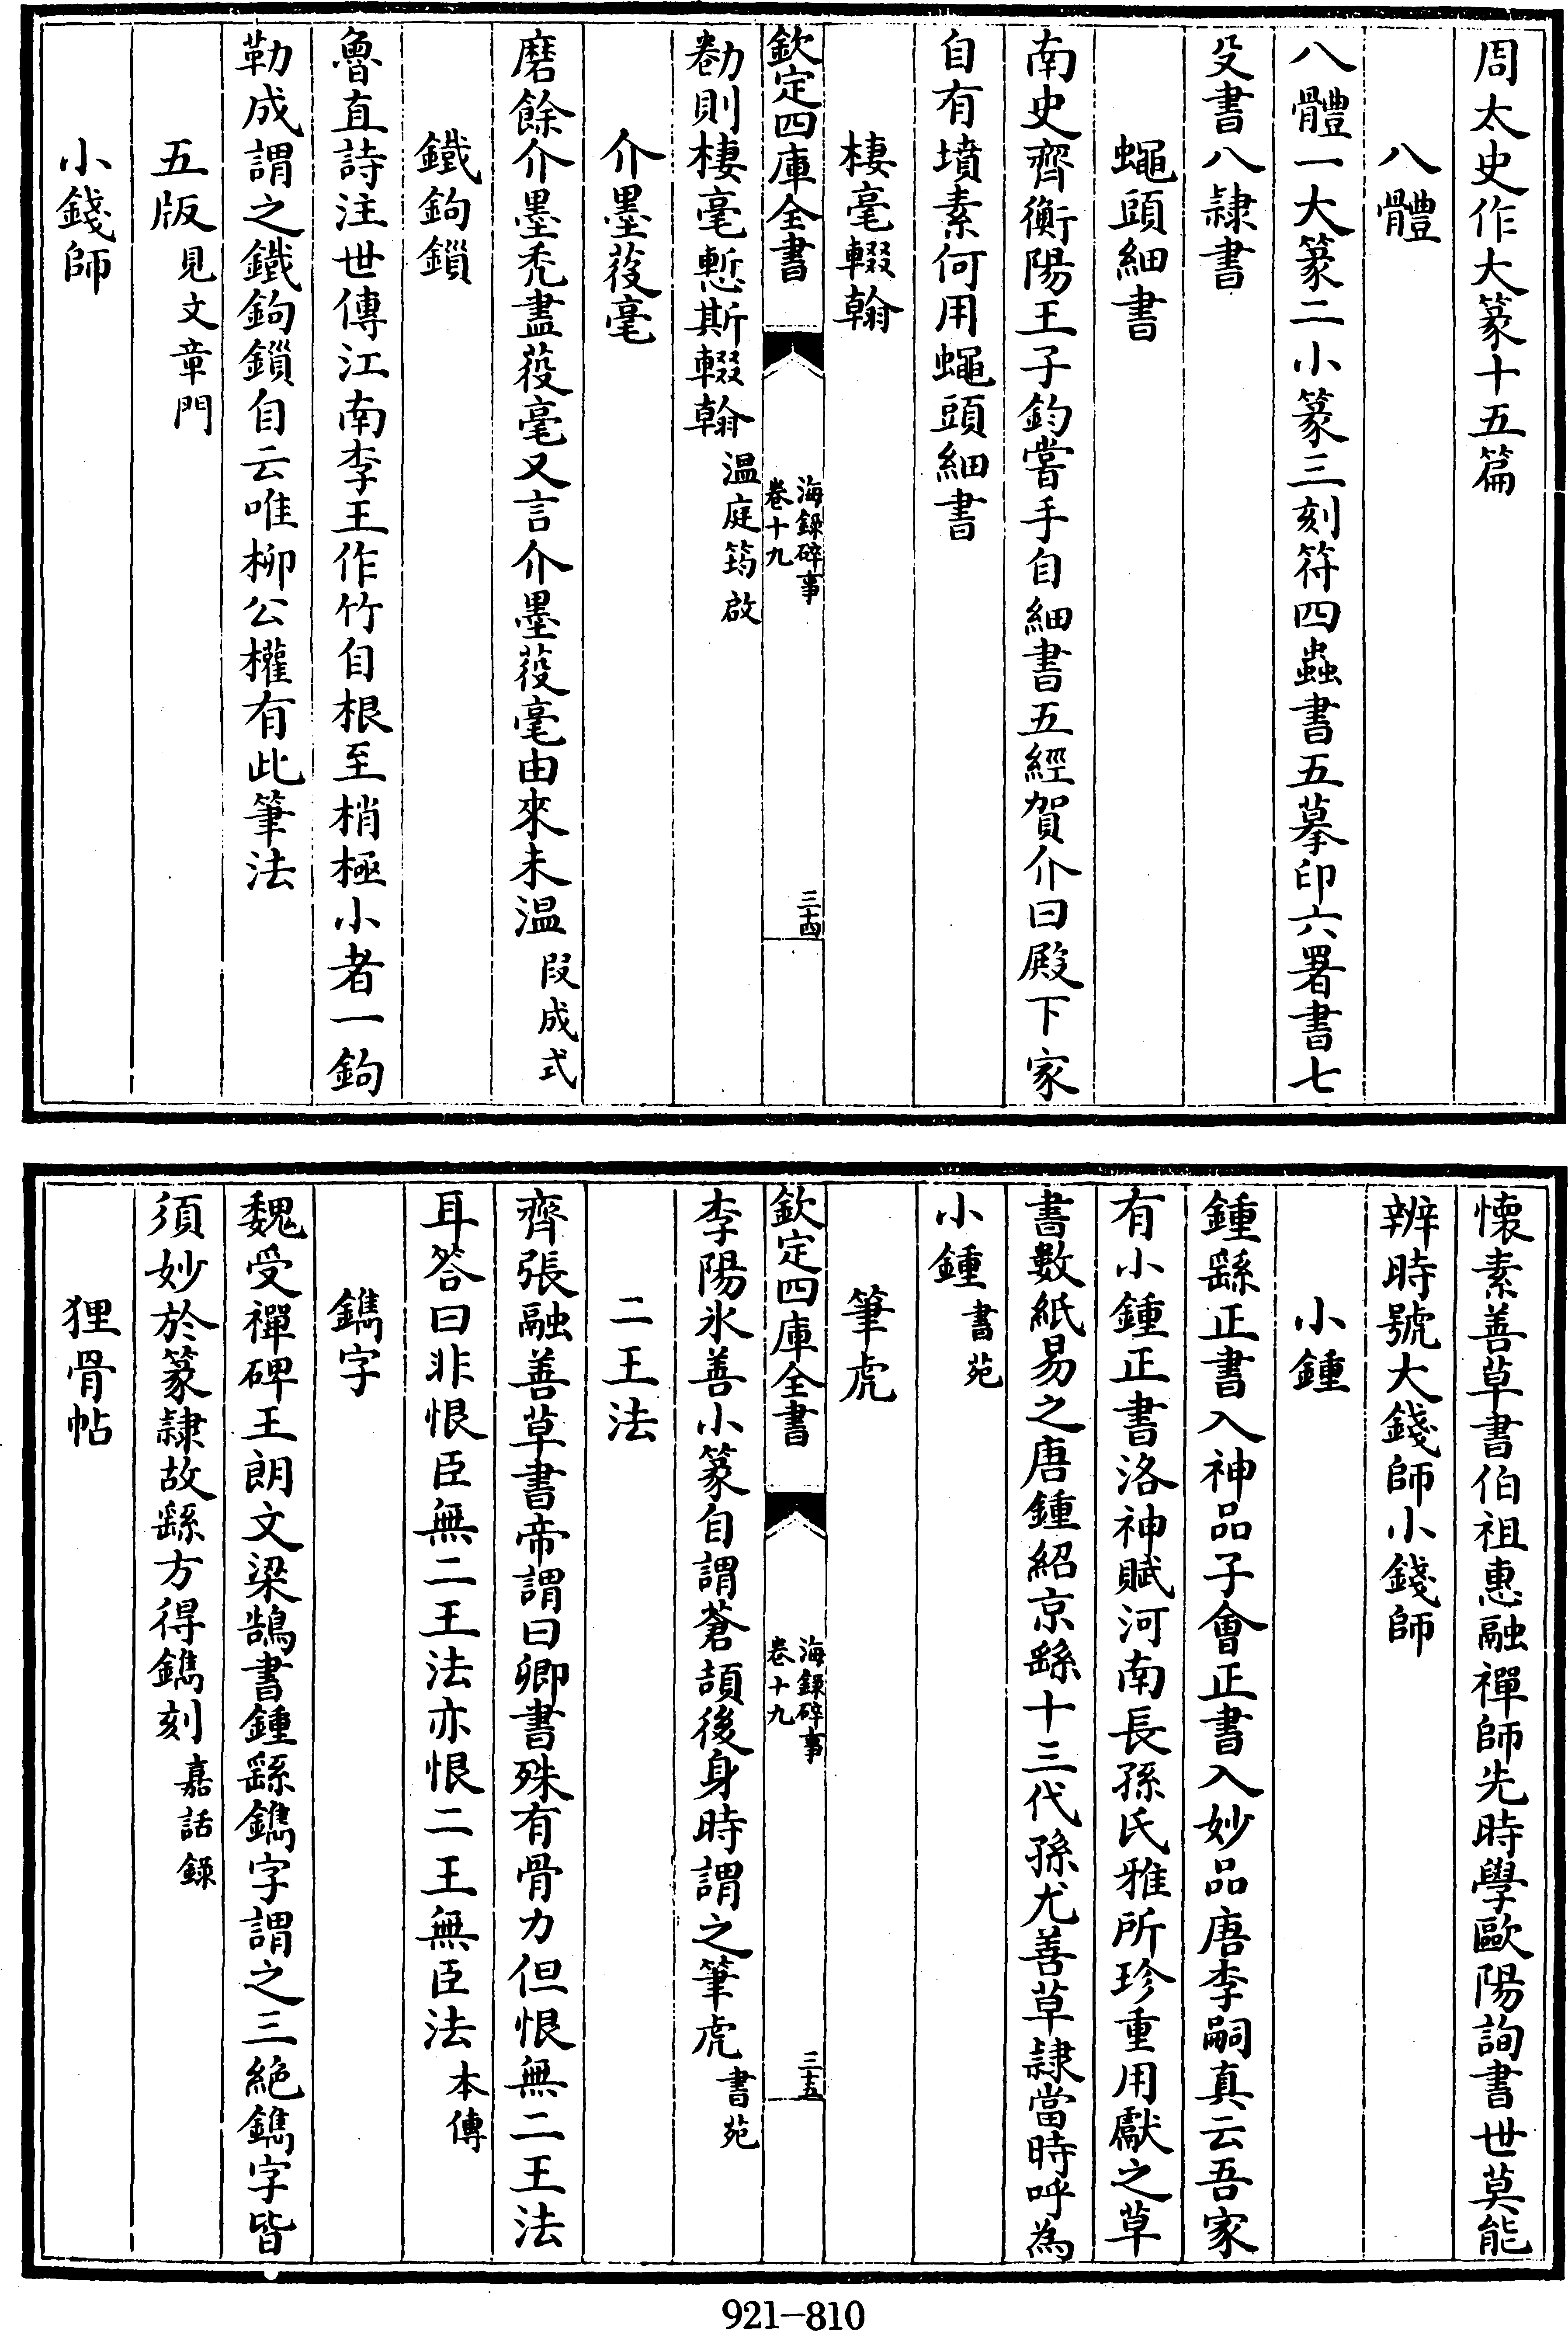 周太史作大篆十五篇
八體
八體一大篆二小篆三刻符四蟲書五摹印六署書七
殳書八隷書
蠅頭細書
南史齊衡陽王子鈞嘗手自細書五經賀介曰殿下家
自有墳素何用蠅頭細書
棲毫輟翰
欽定四庫全書
海錄碎事
卷十九
三十四
勌則棲毫慙斯輟翰溫庭筠啟
介墨葰毫
磨餘介墨秃盡葰毫又言介墨葰毫由來未溫段成式
鐵鉤鎻
魯直詩注世傳江南李王作竹自根至梢極小者一鉤
勒成謂之鐵鉤鎻自云唯栁公權有此筆法
五版見文章門
小錢師
懷素善草書伯祖惠融禪師先時學歐陽詢書世莫能
辨時號大錢師小錢師
小鍾
鍾繇正書入神品子會正書入妙品唐李嗣真云吾家
有小鍾正書洛神賦河南長孫氏雅所珍重用獻之草
書數紙易之唐鍾紹京繇十三代孫尤善草隷當時呼為
小鍾書苑
筆虎
欽定四庫全書
海錄碎事
卷十九
三十五
李陽氷善小篆自謂蒼頡後身時謂之筆虎書苑
二王法
齊張融善草書帝謂曰卿書殊有骨力但恨無二王法
耳答曰非恨臣無二王法亦恨二王無臣法本傳
鐫字
魏受禪碑王朗文梁鵠書鍾繇鐫字謂之三絶鐫字皆
須妙於篆隷故繇方得鐫刻嘉話錄
狸骨帖
921-810